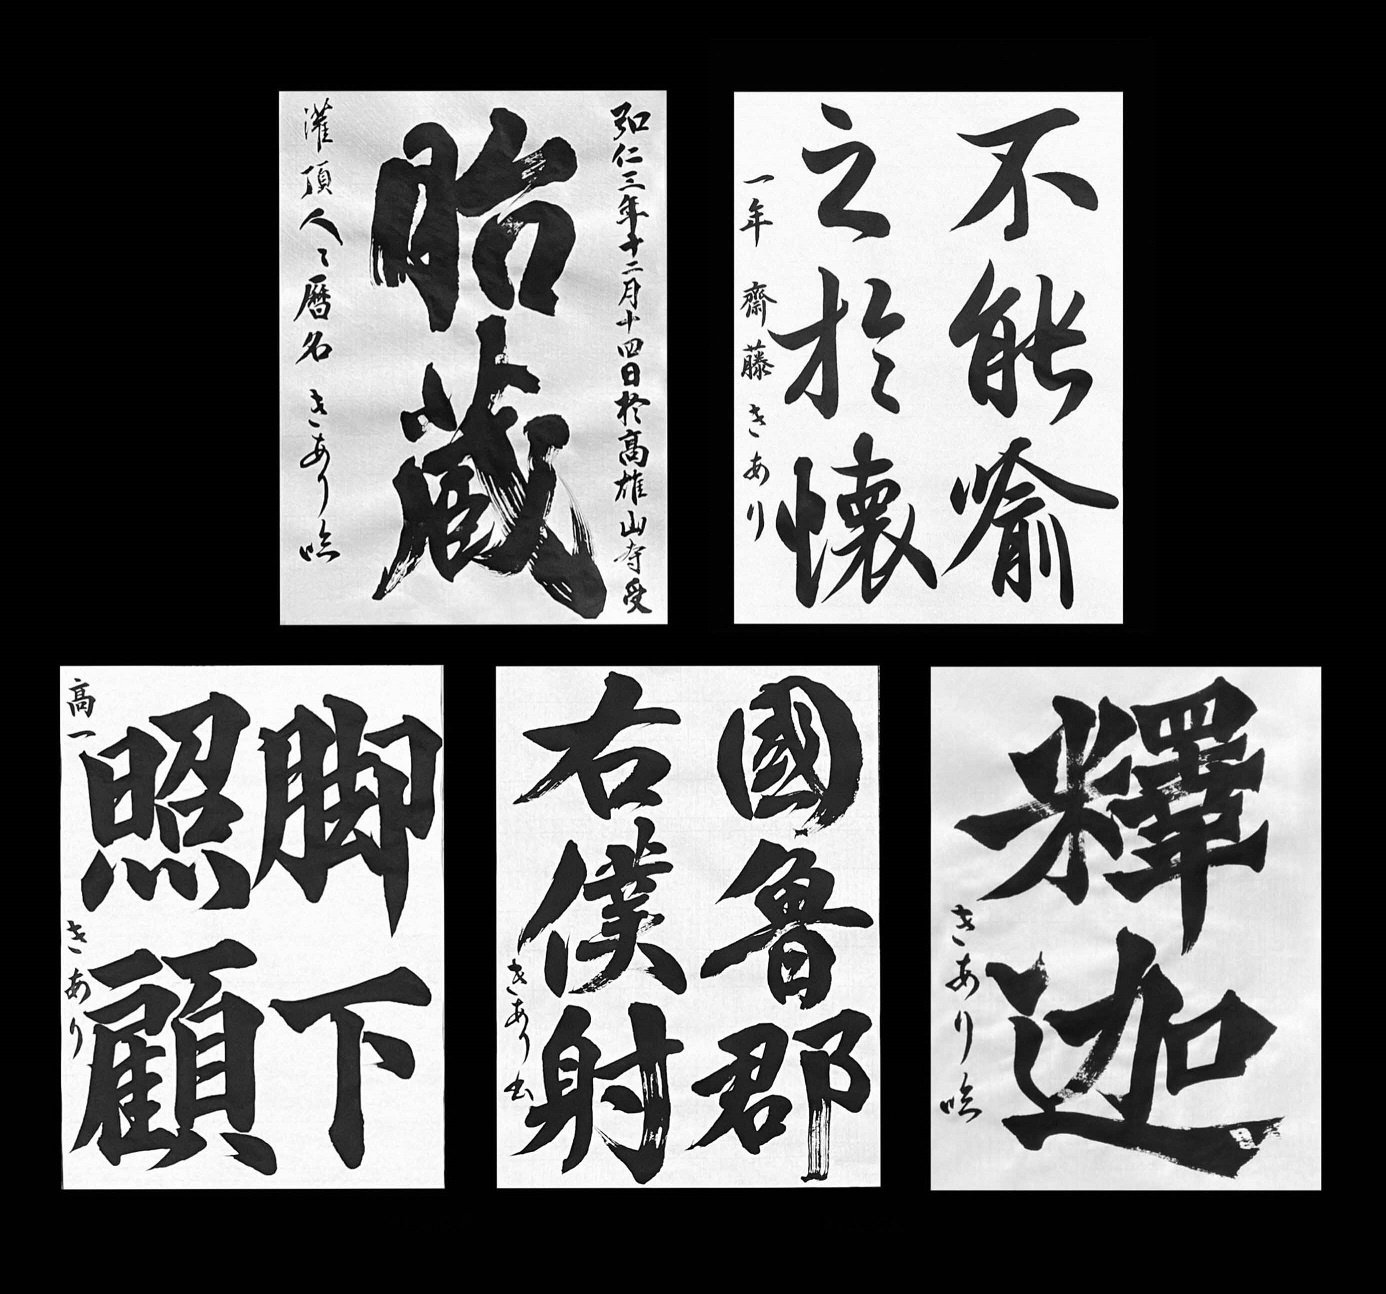 弘仁三年十二月十四日於高雄山寺受
胎蔵
灌頂人々暦名 きあり臨
不能喻
之於懐
一年 齋藤きあり
脚下
照顧
高一 きあり
國魯郡
右僕射
きあり書
釋迦
きあり臨